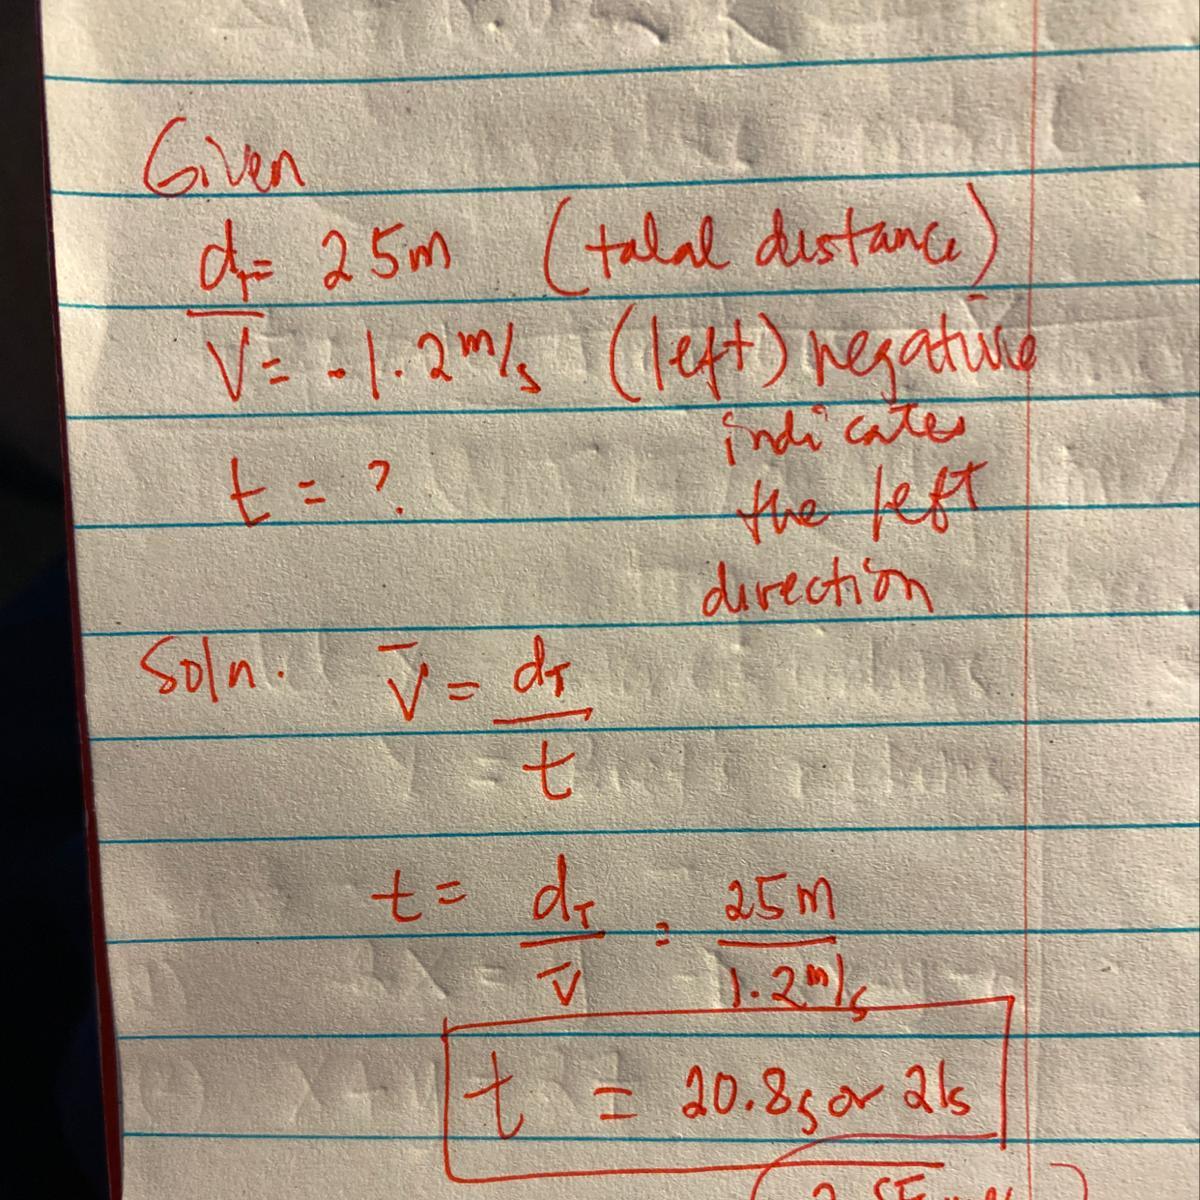 Given
dT = 25m (talal distance)
V̅ = -1.2 m/s (left) negative
indicates
t = ? the left
direction
Soln. V̅ = dT / t
t = dT / V̅ = 25m / 1.2 m/s
t = 20.8s or 21s